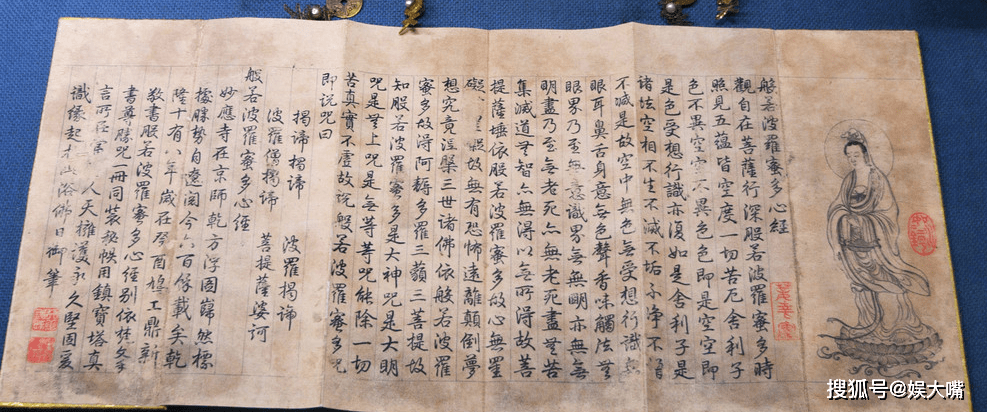 般若波羅蜜多心經
觀自在菩薩行深般若波羅蜜多時
照見五蘊皆空度一切苦厄舍利子
色不異空空不異色色即是空空即
是色受想行識亦復如是舍利子是
諸法空相不生不滅不垢不淨不增
不減是故空中無色無受想行識無
眼耳鼻舌身意無色聲香味觸法無
眼界乃至無意識界無無明亦無無
明盡乃至無老死亦無老死盡無苦
集滅道無智亦無得以無所得故菩
提薩埵依般若波羅蜜多故心無罣
礙故無有恐怖遠離顛倒夢
想究竟涅槃三世諸佛依般若波羅
蜜多故得阿耨多羅三藐三菩提故
知般若波羅蜜多是大神咒是大明
咒是無上咒是無等等咒能除一切
苦真實不虛故說般若波羅蜜多咒
即說咒曰
揭諦揭諦 波羅揭諦
波羅僧揭諦 菩提薩婆訶
般若波羅蜜多心經
妙應寺在京師乾方浮圖巋然標
據勝勢自遼閱今六百餘載矣乾
隆十有八年歲在癸酉鳩工鼎新
敬書般若波羅蜜多心經別依梵文
書尊勝咒一冊同裝秘帙用鎮寶塔真
言所在人天擁護永久堅固爰
識緣起浴佛日御筆
搜狐号@娱大嘴